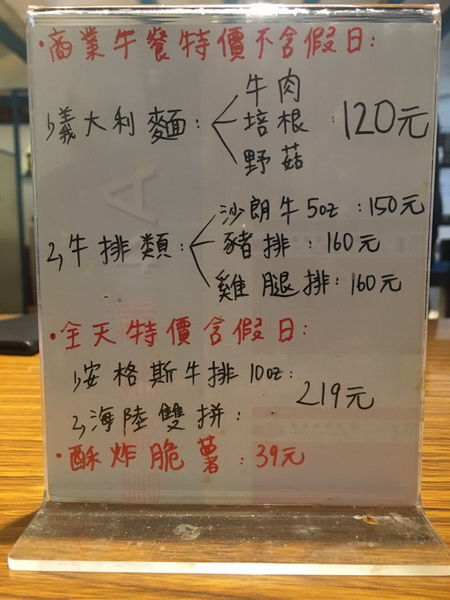 ·商業午餐特價不含假日:
1,義大利麵: 牛肉
培根 :120元
野菇
2,牛排類: 沙朗牛5oz :150元
豬排 :160元
雞腿排:160元
·全天特價含假日:
1,安格斯牛排10oz:
219元
2,海陸雙拼:
·酥炸脆薯:39元